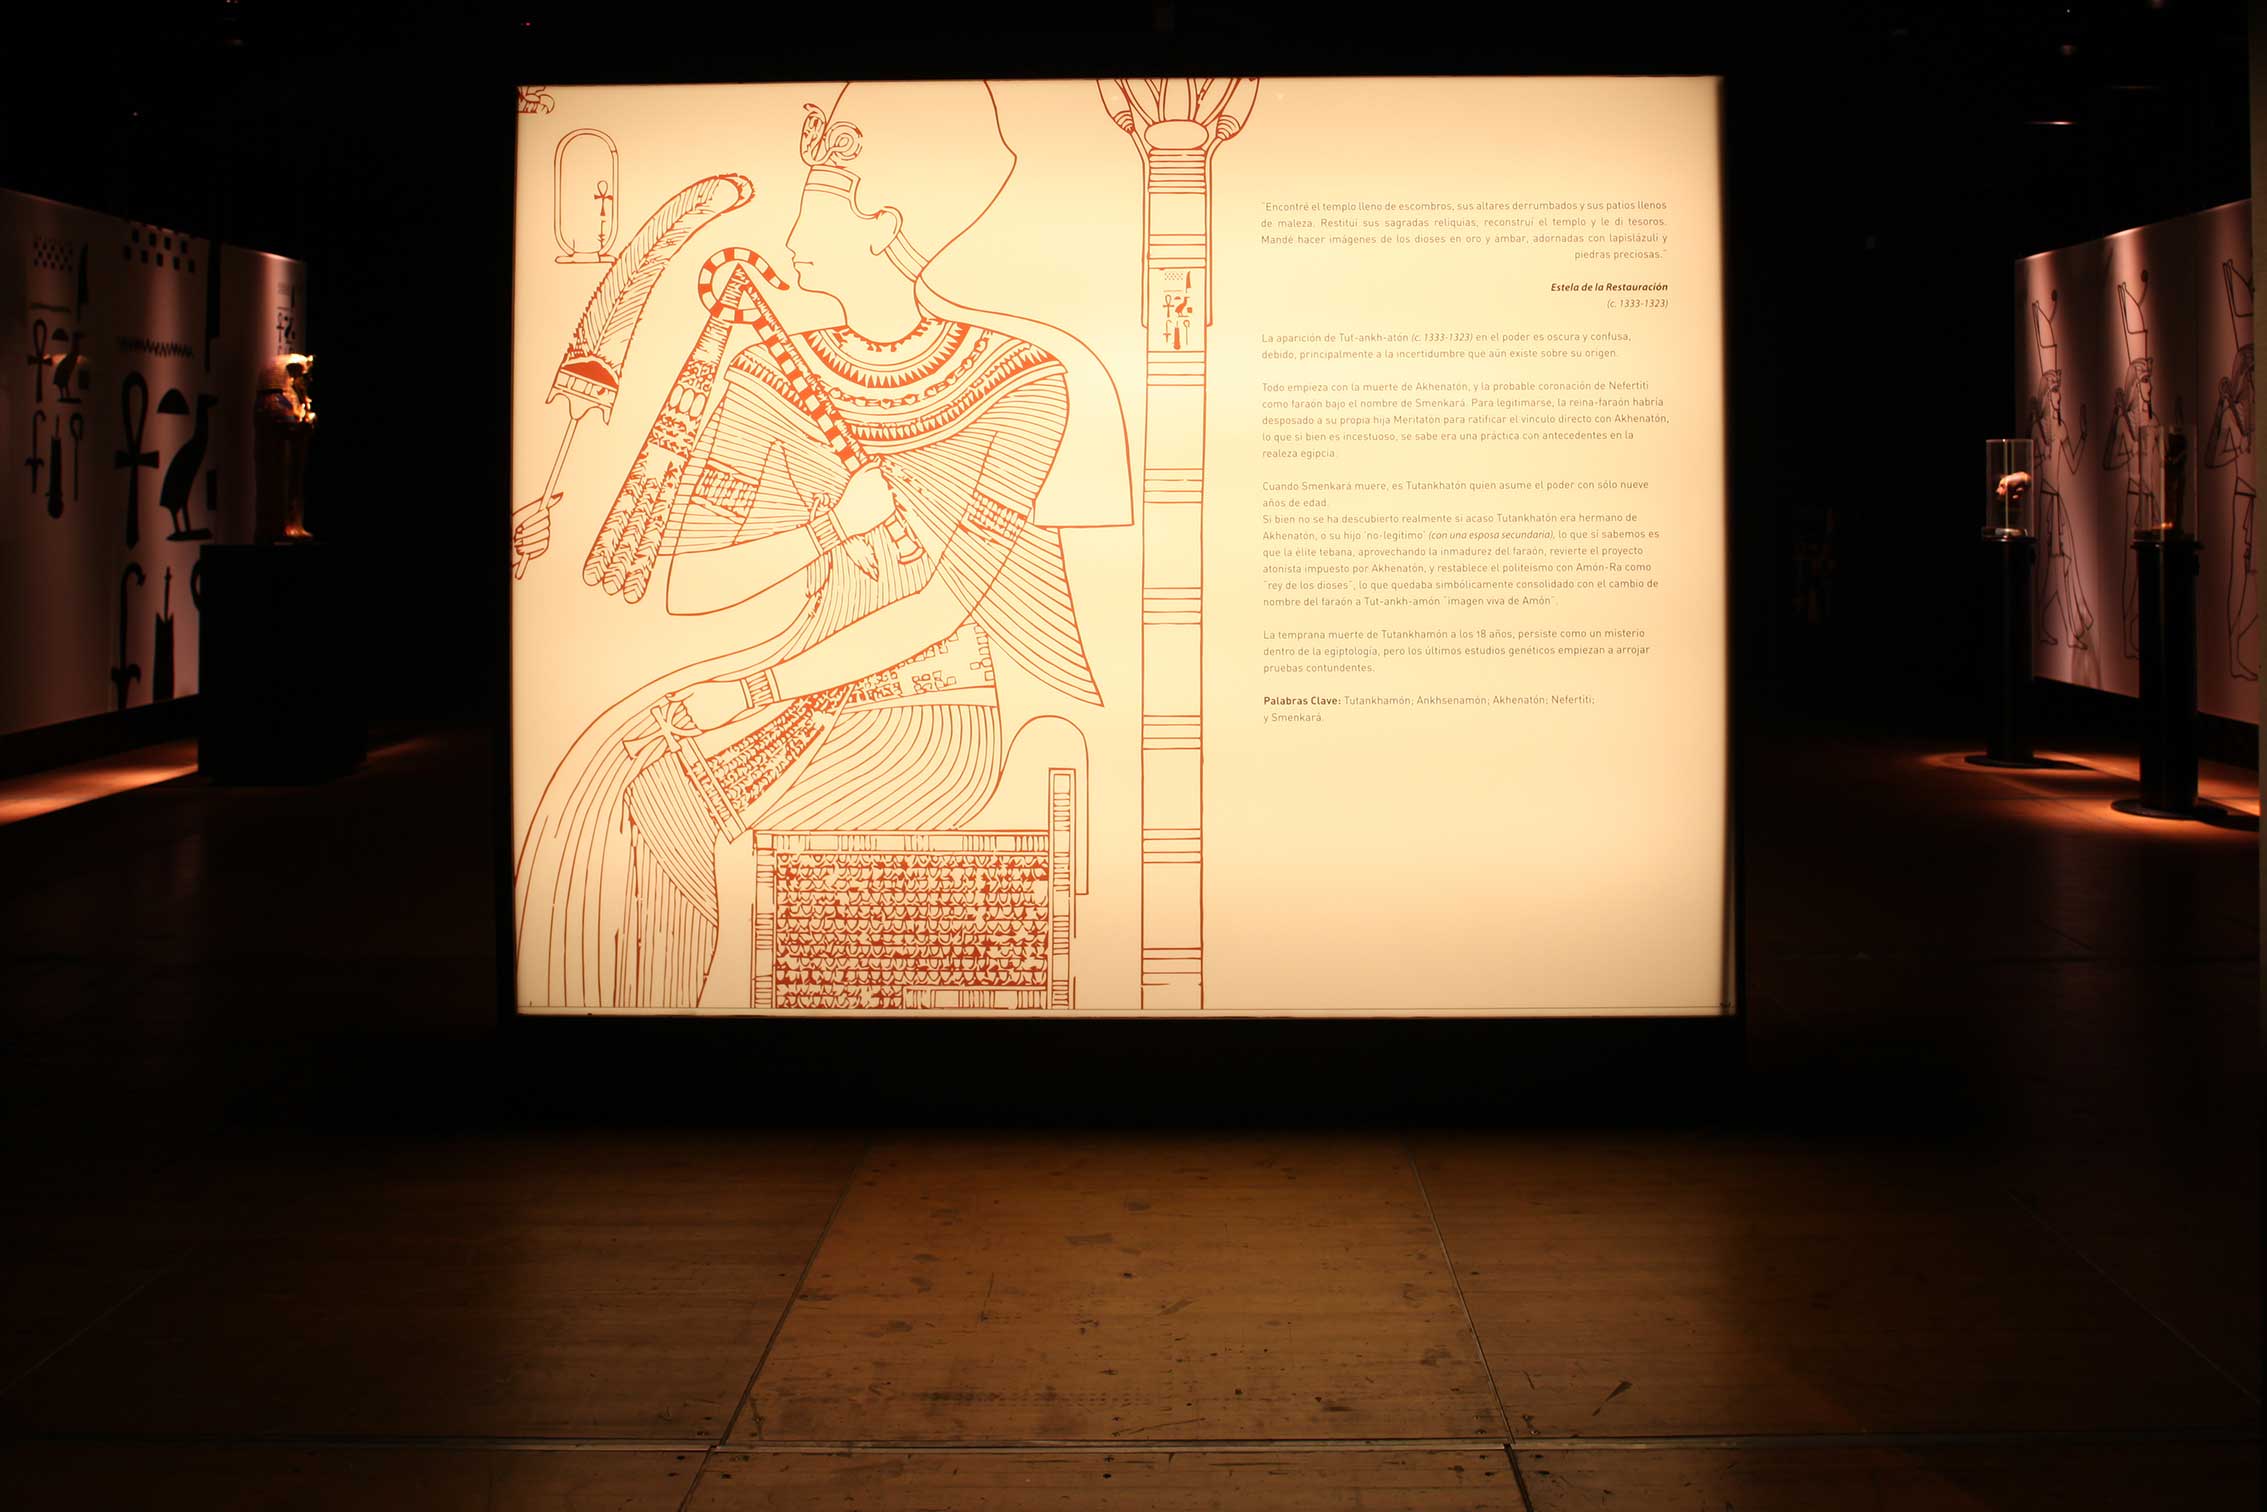 "Encontré el templo lleno de escombros, sus altares derrumbados y sus patios llenos
de maleza. Restituí sus sagradas reliquias, reconstruí el templo y le di tesoros.
Mandé hacer imágenes de los dioses en oro y ámbar, adornadas con lapislázuli y
piedras preciosas."
Estela de la Restauración
(c. 1333-1323)
La aparición de Tut-ankh-atón (c. 1333-1323) en el poder es oscura y confusa,
debido, principalmente a la incertidumbre que aún existe sobre su origen.
Todo empieza con la muerte de Akhenatón, y la probable coronación de Nefertiti
como faraón bajo el nombre de Smenkará. Para legitimarse, la reina-faraón habría
desposado a su propia hija Meritatón para ratificar el vínculo directo con Akhenatón,
lo que si bien es incestuoso, se sabe era una práctica con antecedentes en la
realeza egipcia.
Cuando Smenkará muere, es Tutankhatón quien asume el poder con sólo nueve
años de edad.
Si bien no se ha descubierto realmente si acaso Tutankhatón era hermano de
Akhenatón, o su hijo 'no-legítimo' (con una esposa secundaria), lo que sí sabemos es
que la élite tebana, aprovechando la inmadurez del faraón, revierte el proyecto
atonista impuesto por Akhenatón, y restablece el politeísmo con Amón-Ra como
"rey de los dioses", lo que quedaba simbólicamente consolidado con el cambio de
nombre del faraón a Tut-ankh-amón "imagen viva de Amón".
La temprana muerte de Tutankhamón a los 18 años, persiste como un misterio
dentro de la egiptología, pero los últimos estudios genéticos empiezan a arrojar
pruebas contundentes.
Palabras Clave: Tutankhamón; Ankhsenamón; Akhenatón; Nefertiti;
y Smenkará.